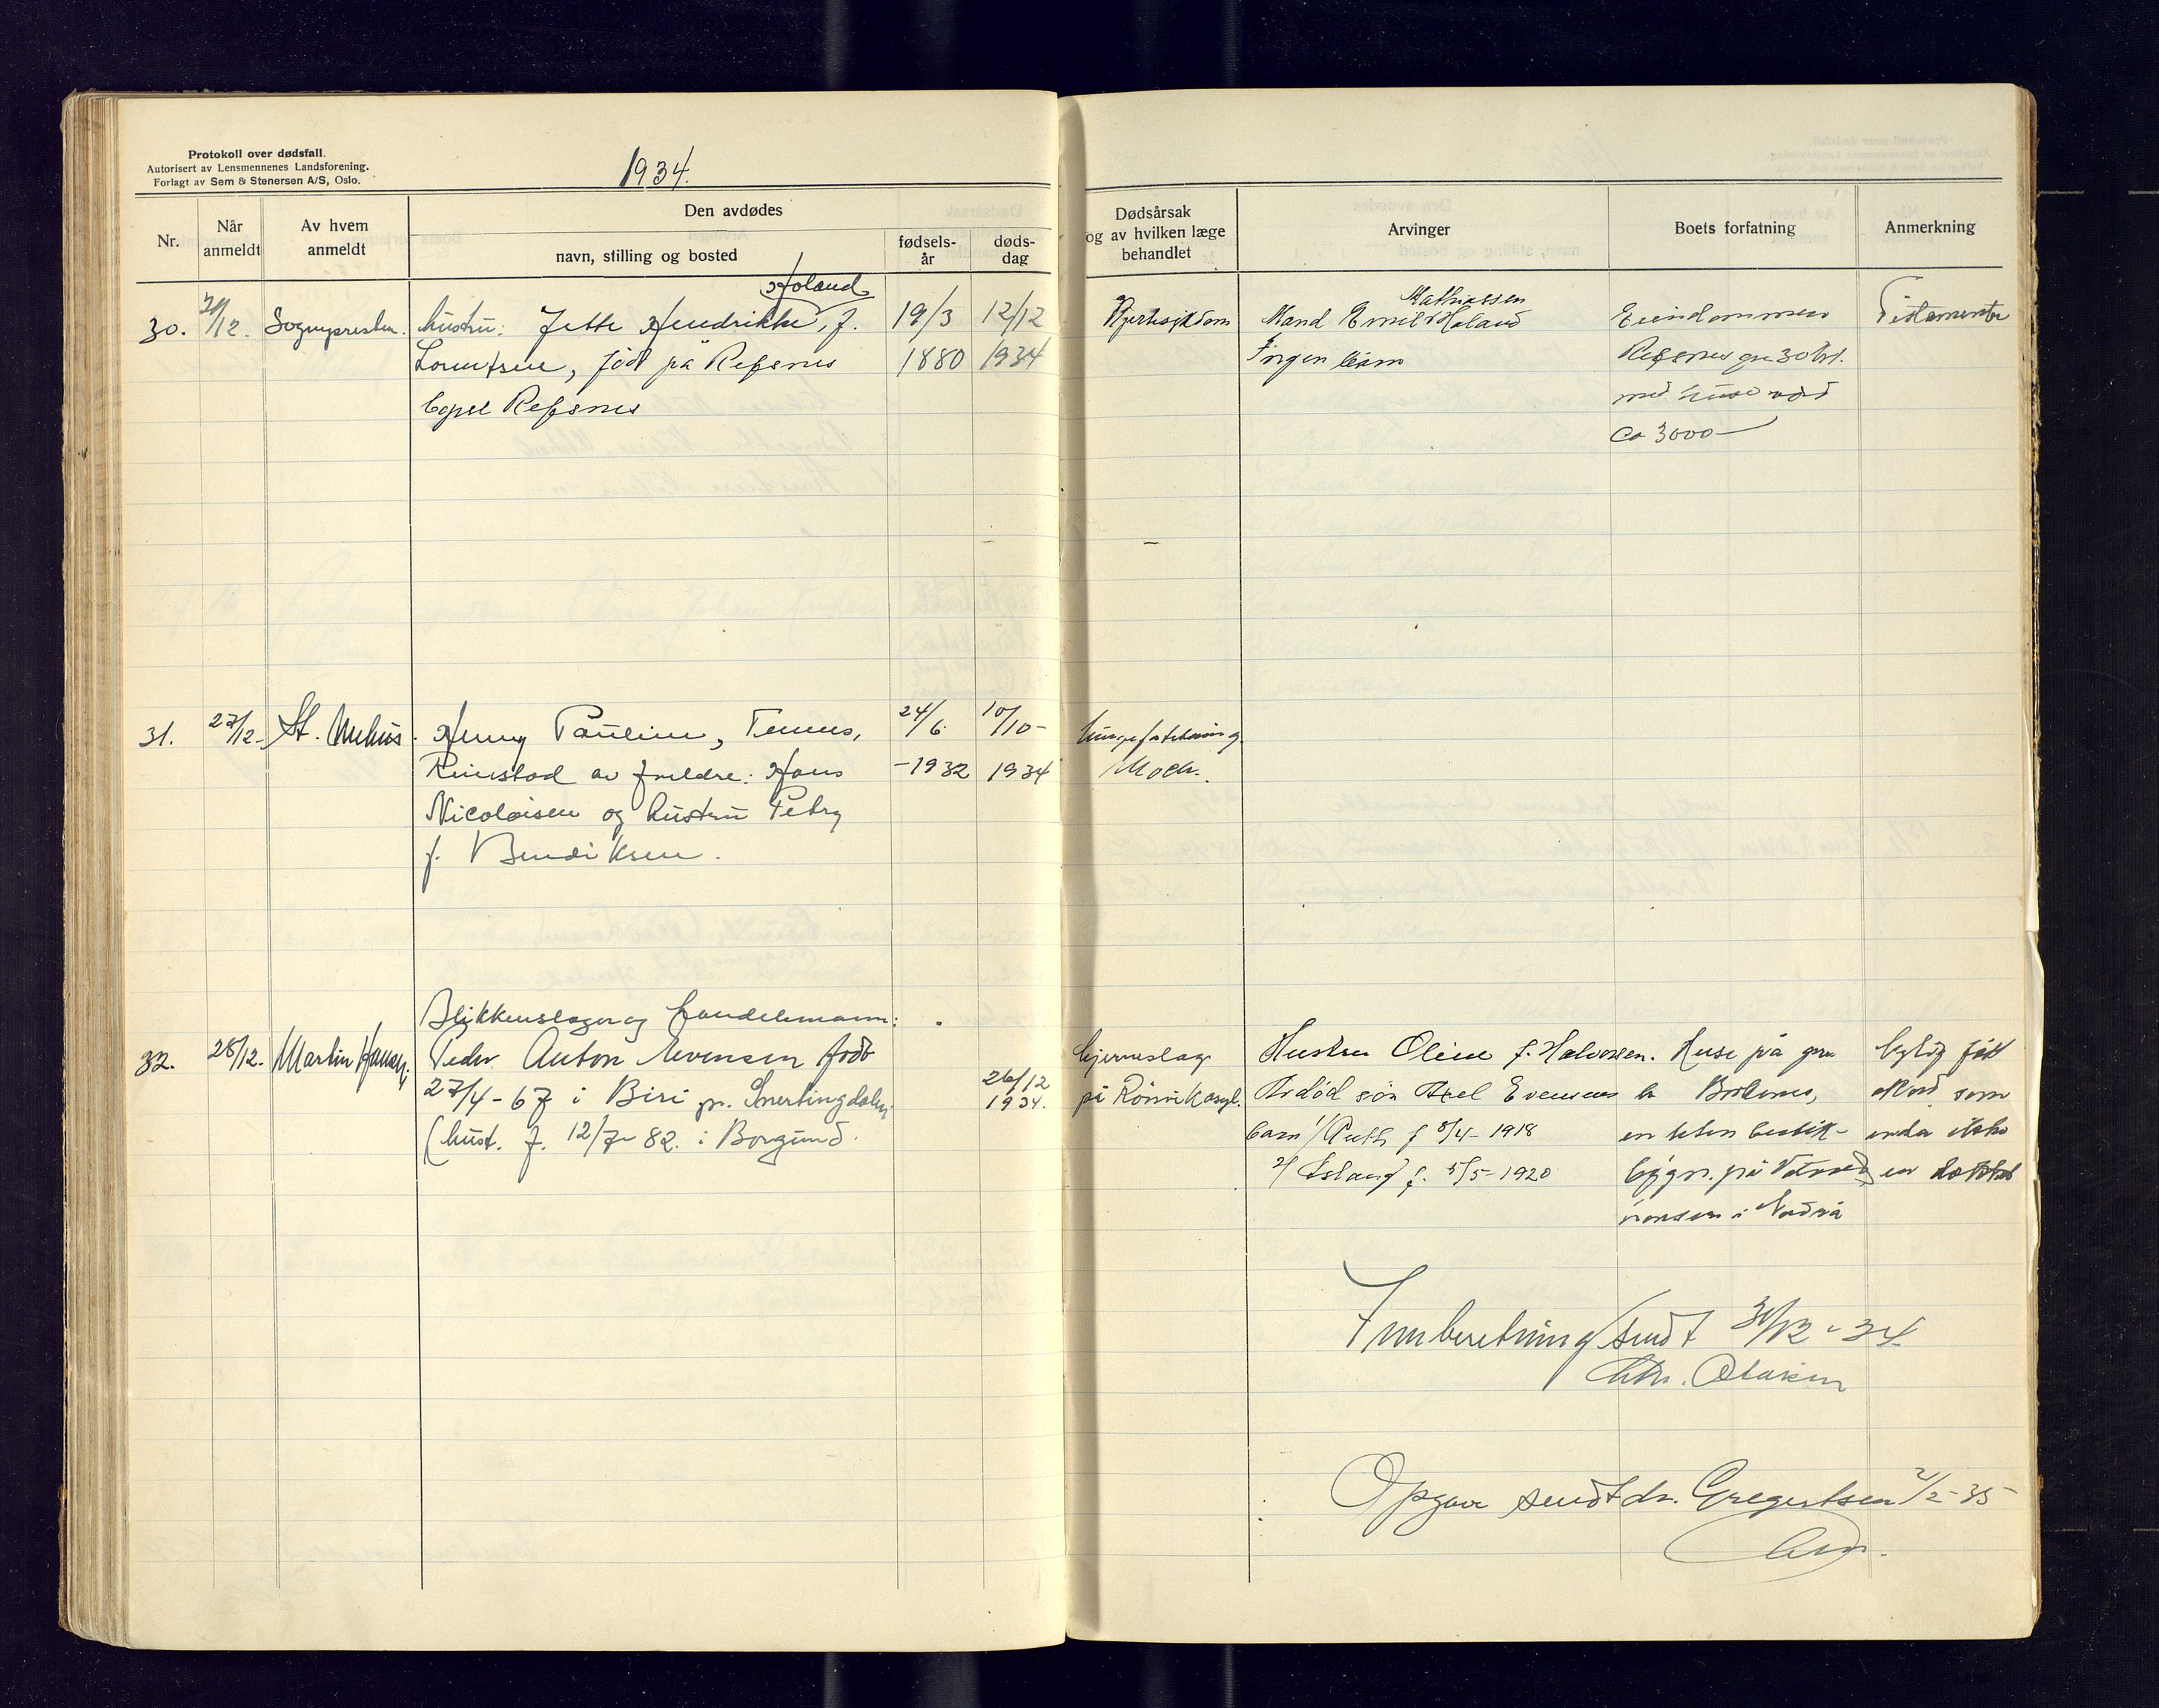 Protokoll over dødsfall.
Autorisert av Lensmennenes Landsforening.
Forlagt av Sem & Stenersen A/S, Oslo.
1934.
Nr.
Når anmeldt
Av hvem anmeldt
Den avdødes
navn, stilling og bosted
fødsels-år
døds-dag
Dødsårsak og av hvilken læge behandlet
Arvinger
Boets forfatning
Anmerkning
30.
/12.
Sognepresten.
Høland
hustru: Jette Hendrikke, f.
Lorentsen, född på Refsnes
bopæl Refsnes
19/3
1880
12/12
1934
Hjertesykdom
Mathiassen
Mand Emil Høland
Ingen barn
Eiendommen
Refsnes gr. 30 br. 1.
med huse verd
Ca 3000
Testamente
31.
27/12-
St.
Henny Pauline, Tennes,
av foreldre: Hans
Nicolaisen og hustru Petry
f. Bendiksen.
24/6
-1932
10/10-
1934
Moch.
32.
28/12.
Martin Hansen,
Blikkenslager og handelsmann:
Peder Anton Evensen född
27/4-67 i Biri pr. Snertingdalen,
(hust. f. 12/7-82. i Borgund.
26/12
1934.
hjerneslag
på Rönvik asyl.
Hustru Oline f. Halvorsen.
Avdöd sön Axel Evensens
barn 1/ Ruth f 8/4-1918
2/ Aslaug f. 5/5-1920
Huse på grn
en liten butik-
bygn. på
i
som
enda
Innberetning sendt 31/12-34.
Chr. Olaisen
Opgave sendt dr. Gregertsen 2/2-35